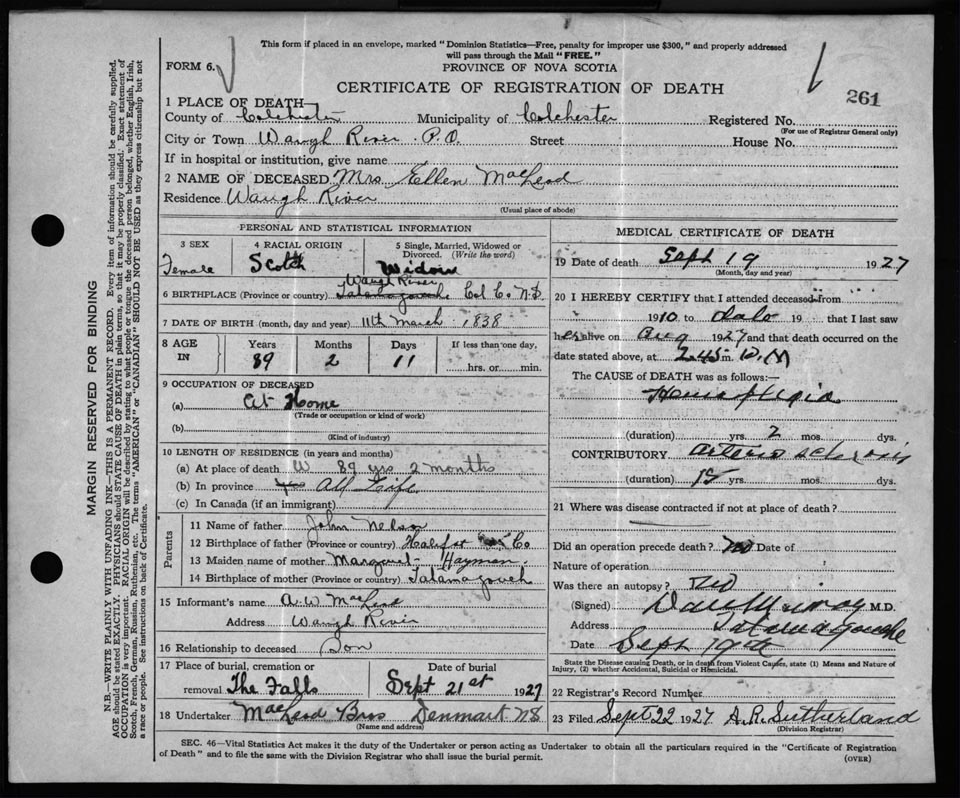 This form if placed in an envelope, marked "Dominion Statistics—Free, penalty for improper use $300," and properly addressed
will pass through the Mail "FREE."
FORM 6.
PROVINCE OF NOVA SCOTIA
CERTIFICATE OF REGISTRATION OF DEATH
261
1 PLACE OF DEATH—
County of Colchester Municipality of Colchester Registered No.
(For use of Registrar General only)
City or Town Waugh River P.O. Street House No.
If in hospital or institution, give name
2 NAME OF DECEASED Mrs Ellen MacLeod
Residence Waugh River
(Usual place of abode)
PERSONAL AND STATISTICAL INFORMATION
3 SEX 4 RACIAL ORIGIN 5 Single, Married, Widowed or Divorced. (Write the word)
Female Scotch Widow
Waugh River
6 BIRTHPLACE (Province or country) Tatamagouche Col Co N.S
7 DATE OF BIRTH (month, day and year) 11th March 1838
8 AGE IN Years Months Days If less than one day,
89 2 11 hrs. or min.
9 OCCUPATION OF DECEASED
(a) At Home
(Trade or occupation or kind of work)
(b)
(Kind of industry)
10 LENGTH OF RESIDENCE (in years and months)
(a) At place of death 89 yrs 2 months
(b) In province yrs All Life
(c) In Canada (if an immigrant)
Parents
11 Name of father John Nelson
12 Birthplace of father (Province or country) Halifax Co
13 Maiden name of mother Margaret Hayman
14 Birthplace of mother (Province or country) Tatamagouch
15 Informant's name A.W MacLeod
Address Waugh River
16 Relationship to deceased Son
17 Place of burial, cremation or removal The Falls
Date of burial Sept 21st 1927
18 Undertaker MacLeod Bros Denmark NS
(Name and address)
MEDICAL CERTIFICATE OF DEATH
19 Date of death Sept 19 1927
(Month, day and year)
20 I HEREBY CERTIFY that I attended deceased from
1910 to date 19 that I last saw
her alive on Aug 1927 and that death occurred on the
date stated above, at 2.45 P.M
The CAUSE of DEATH was as follows:—
Hemiplegia
(duration) yrs. 2 mos. dys.
CONTRIBUTORY arterio sclerosis
(duration) 15 yrs. mos. dys.
21 Where was disease contracted if not at place of death?
Did an operation precede death? No Date of
Nature of operation
Was there an autopsy? No
(Signed) Dan Murray M.D.
Address Tatamagouche
Date Sept 19th
State the Disease causing Death, or in death from Violent Causes, state (1) Means and Nature of
Injury, (2) whether Accidental, Suicidal or Homicidal.
22 Registrar's Record Number
23 Filed Sept 22 1927 A.R. Sutherland
(Division Registrar)
SEC. 46—Vital Statistics Act makes it the duty of the Undertaker or person acting as Undertaker to obtain all the particulars required in the "Certificate of Registration
of Death" and to file the same with the Division Registrar who shall issue the burial permit.
(OVER)
MARGIN RESERVED FOR BINDING
N.B.—WRITE PLAINLY WITH UNFADING INK—THIS IS A PERMANENT RECORD. Every item of information should be carefully supplied.
AGE should be stated EXACTLY. PHYSICIANS should STATE CAUSE OF DEATH in plain terms, so that it may be properly classified. Exact statement of
OCCUPATION is very important. RACIAL ORIGIN will be described by stating to what people or tongue the deceased person belonged, whether English, Irish,
Scotch, French, German, Russian, Ruthenian, etc. The terms "AMERICAN" or "CANADIAN" SHOULD NOT BE USED as they express citizenship but not
a race or people. See instructions on back of Certificate.